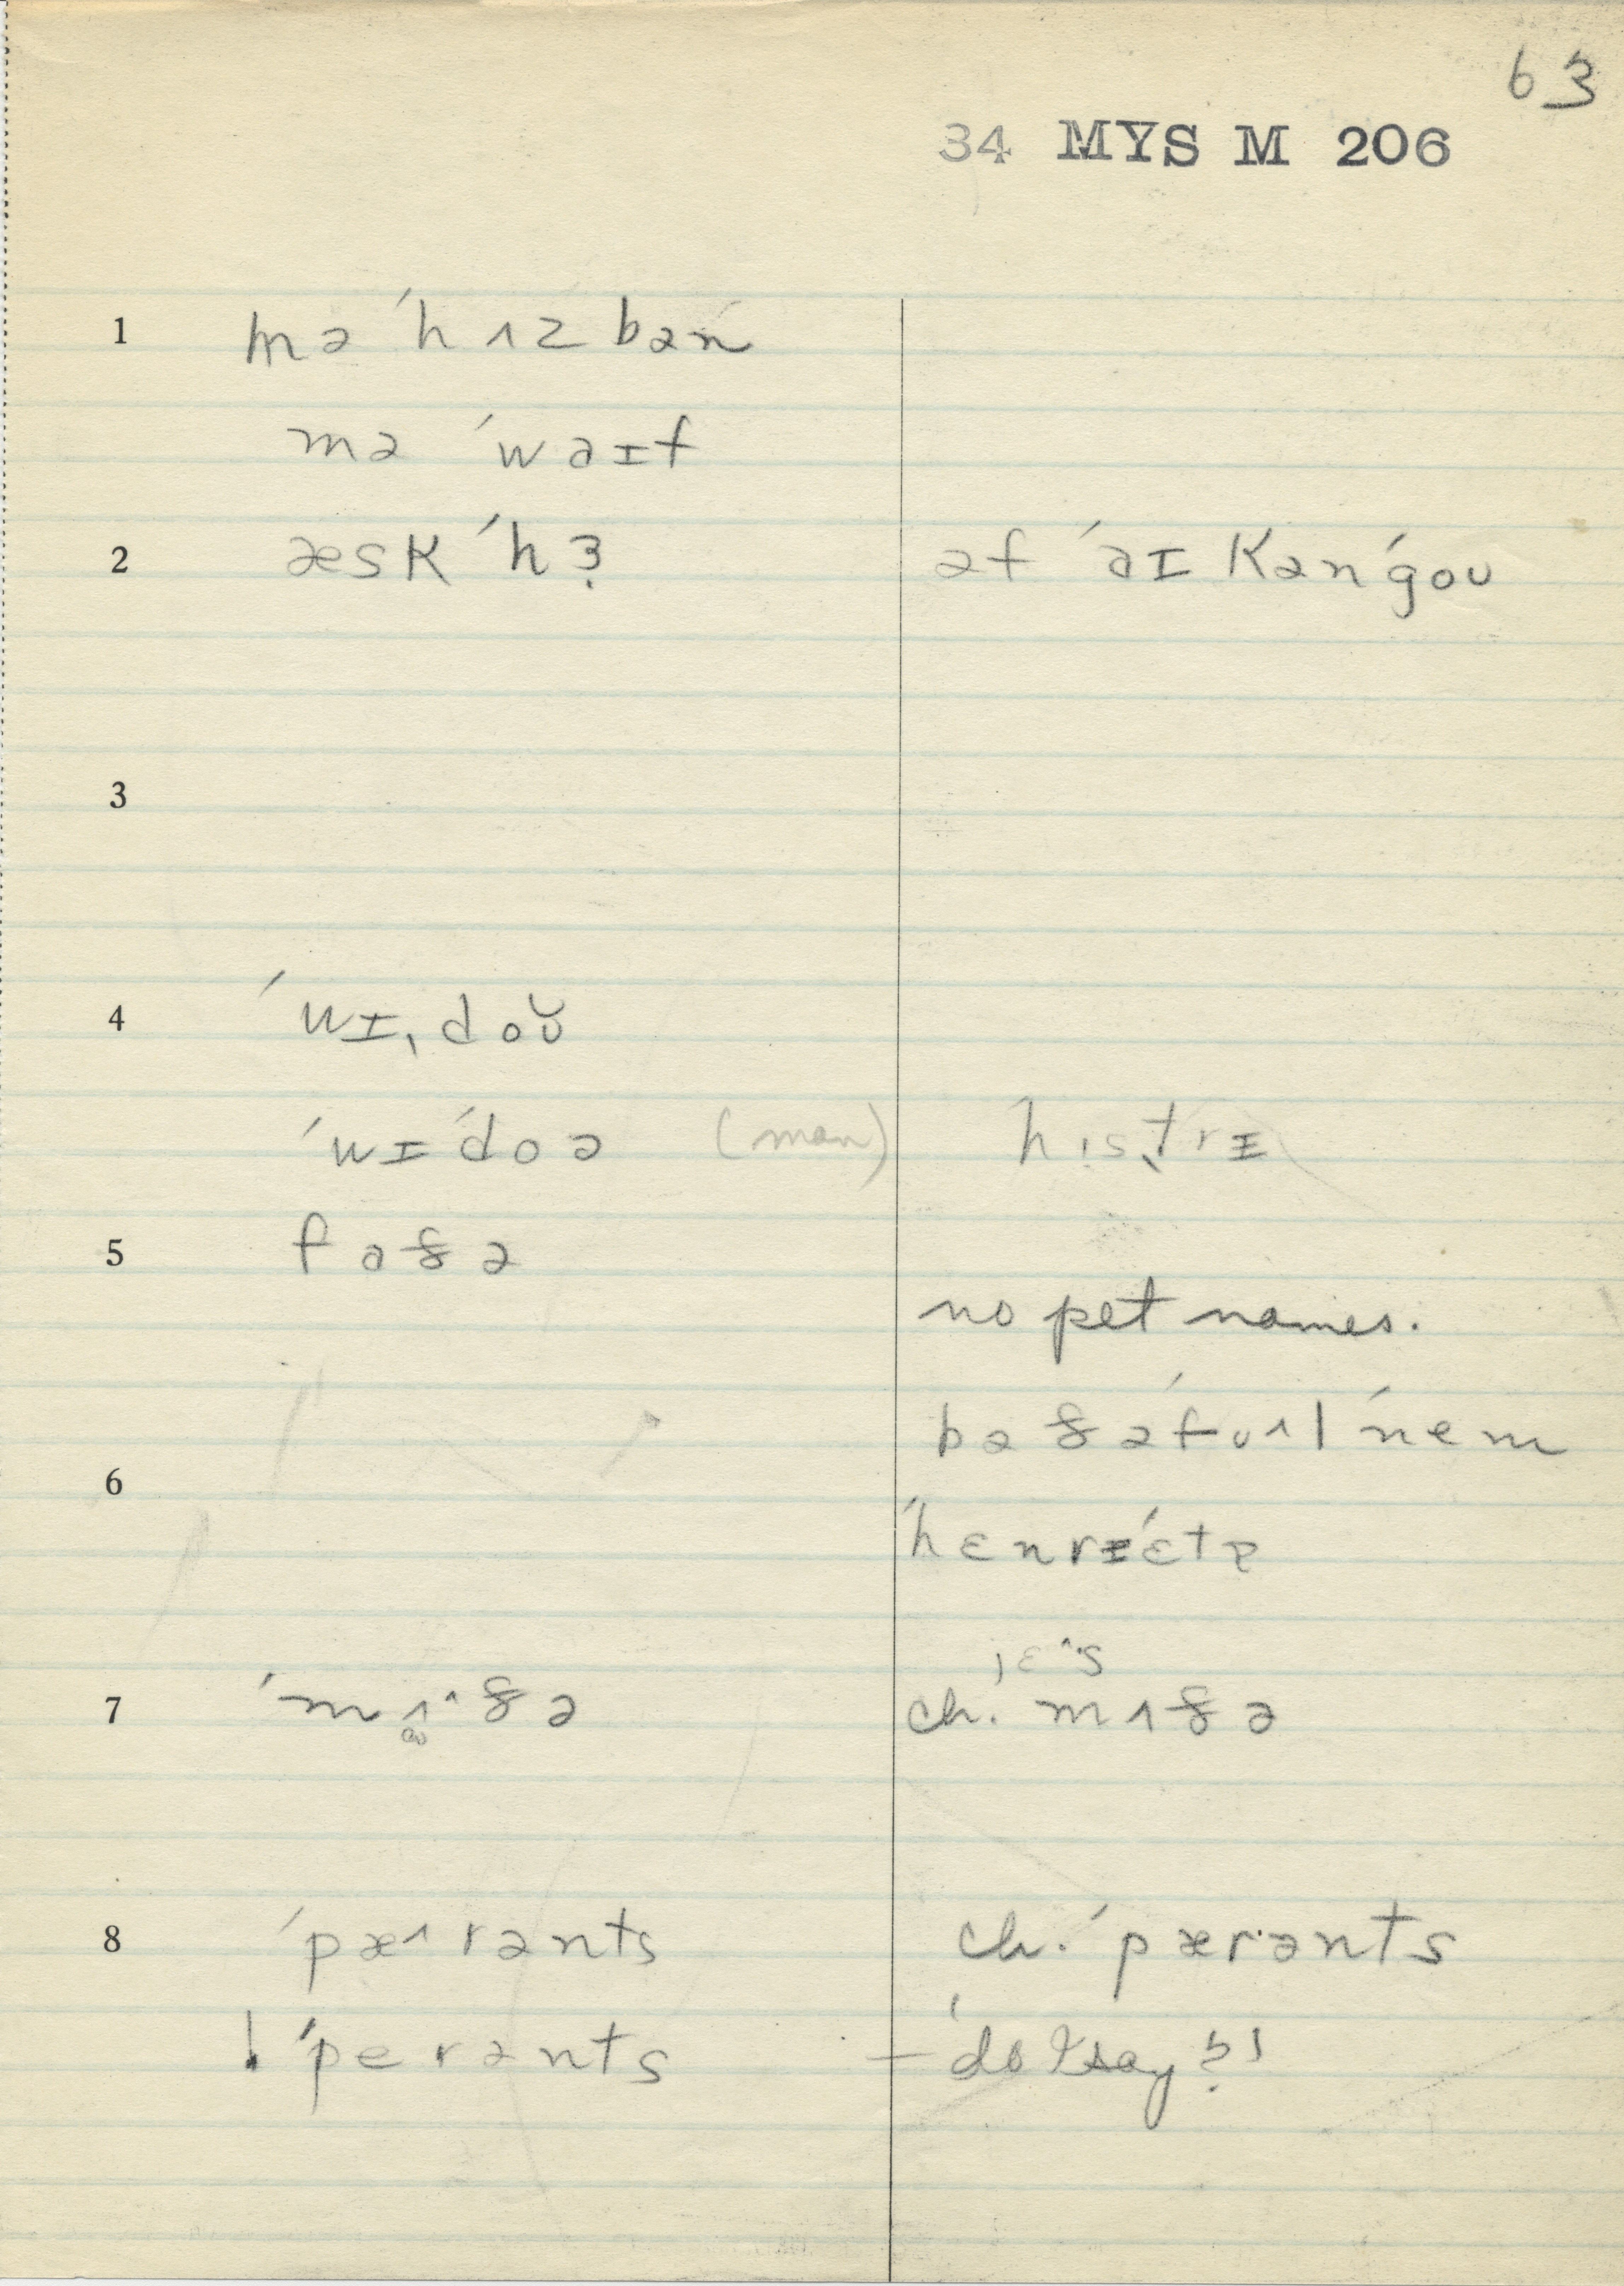 63
34 MYS M 206
1 mə ˈhʌzbən
mə ˈwaɪf
2 æsk ˈhɜ əf ˈaɪ kənˈgoʊ
3
4 ˈwɪˌdoʊ̆
ˈwɪˈdoə (man) ˈhɪstrɪ
5 faðə
no pet names.
bəðə ˈfʊʌl ˈnem
6
ˈhɛnrɪˈɛtə
7 ˈmʌ^ðə ch. mʌðə
8 ˈpæ^rənts ch. ˈpærənts
! ˈperənts – 'do I say?'